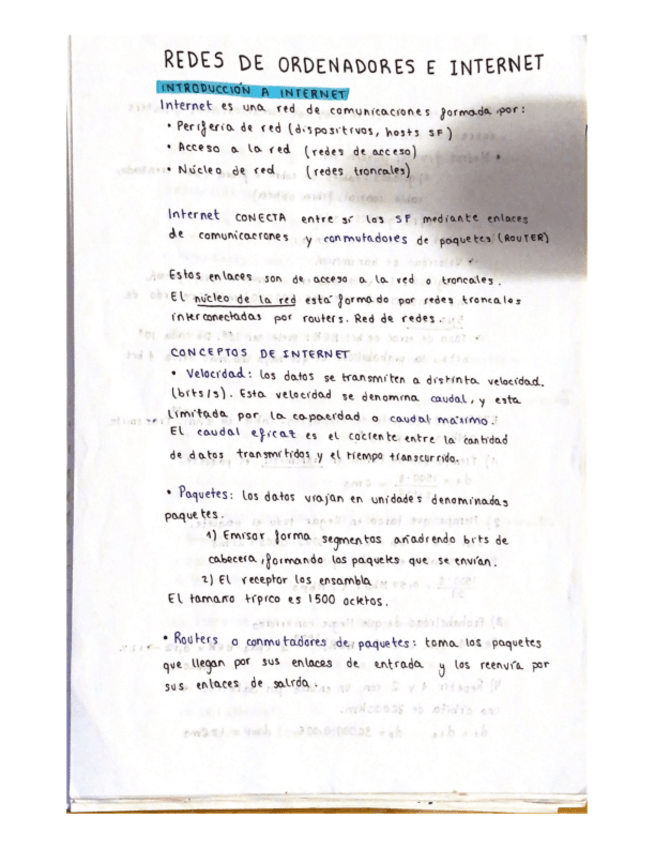 REDES DE ORDENADORES E INTERNET
INTRODUCCIÓN A INTERNET
Internet es una red de comunicaciones formada por:
• Periferia de red (dispositivos, hosts SF)
• Acceso a la red (redes de acceso)
• Núcleo de red (redes troncales)
Internet CONECTA entre sí los SF mediante enlaces
de comunicaciones y conmutadores de paquetes (ROUTER)
Estos enlaces son de acceso a la red o troncales.
El núcleo de la red está formado por redes troncales
interconectadas por routers. Red de redes.
CONCEPTOS DE INTERNET
• Velocidad: los datos se transmiten a distinta velocidad.
(bits/s). Esta velocidad se denomina caudal, y esta
limitada por la capacidad o caudal máximo.
El caudal eficaz es el cociente entre la cantidad
de datos transmitidos y el tiempo transcurrido.
• Paquetes: los datos viajan en unidades denominadas
paquetes.
1) Emisor forma segmentos añadiendo bits de
cabecera, formando los paquetes que se envían.
2) El receptor los ensambla
El tamaño típico es 1500 octetos.
• Routers o conmutadores de paquetes: toma los paquetes
que llegan por sus enlaces de entrada y los reenvía por
sus enlaces de salida.